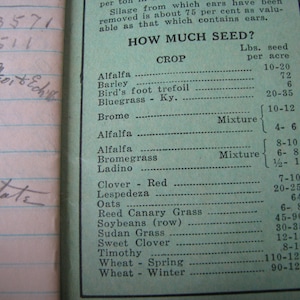 per ton in
Silage from which ears have been
removed is about 75 per cent as valu-
able as that which contains ears.
HOW MUCH SEED?
CROP Lbs. seed per acre
Alfalfa 10-20
Barley 72
Bird's foot trefoil 6
Bluegrass - Ky. 20-35
Brome 10-12
Mixture
Alfalfa 4- 6
Alfalfa 8-10
Bromegrass Mixture 6- 8
Ladino ½- 1
Clover - Red 7-10
Lespedeza 20-
Oats 64
Reed Canary Grass 6-
Soybeans (row) 45-
Sudan Grass 30-
Sweet Clover 12-1
Timothy .8-1
Wheat - Spring 110-12
Wheat - Winter 90-12
3571
511